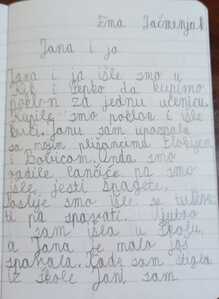 Ema Jačmenjak
Jana i ja
Jana i ja išle smo u
i Tenko da kupimo
poklon za jednu učenicu.
Kupile smo poklon i išle
kući. Janu sam upoznala
sa mojim plišancima
i Bobicom. Onda smo
radile lančiće pa smo
išle jesti špagete.
Poslije smo išle se
i pa spavati. Ujutro
sam išla u školu,
a Jana je malo još
spavala. Kada sam stigla
iz škole Jan sam